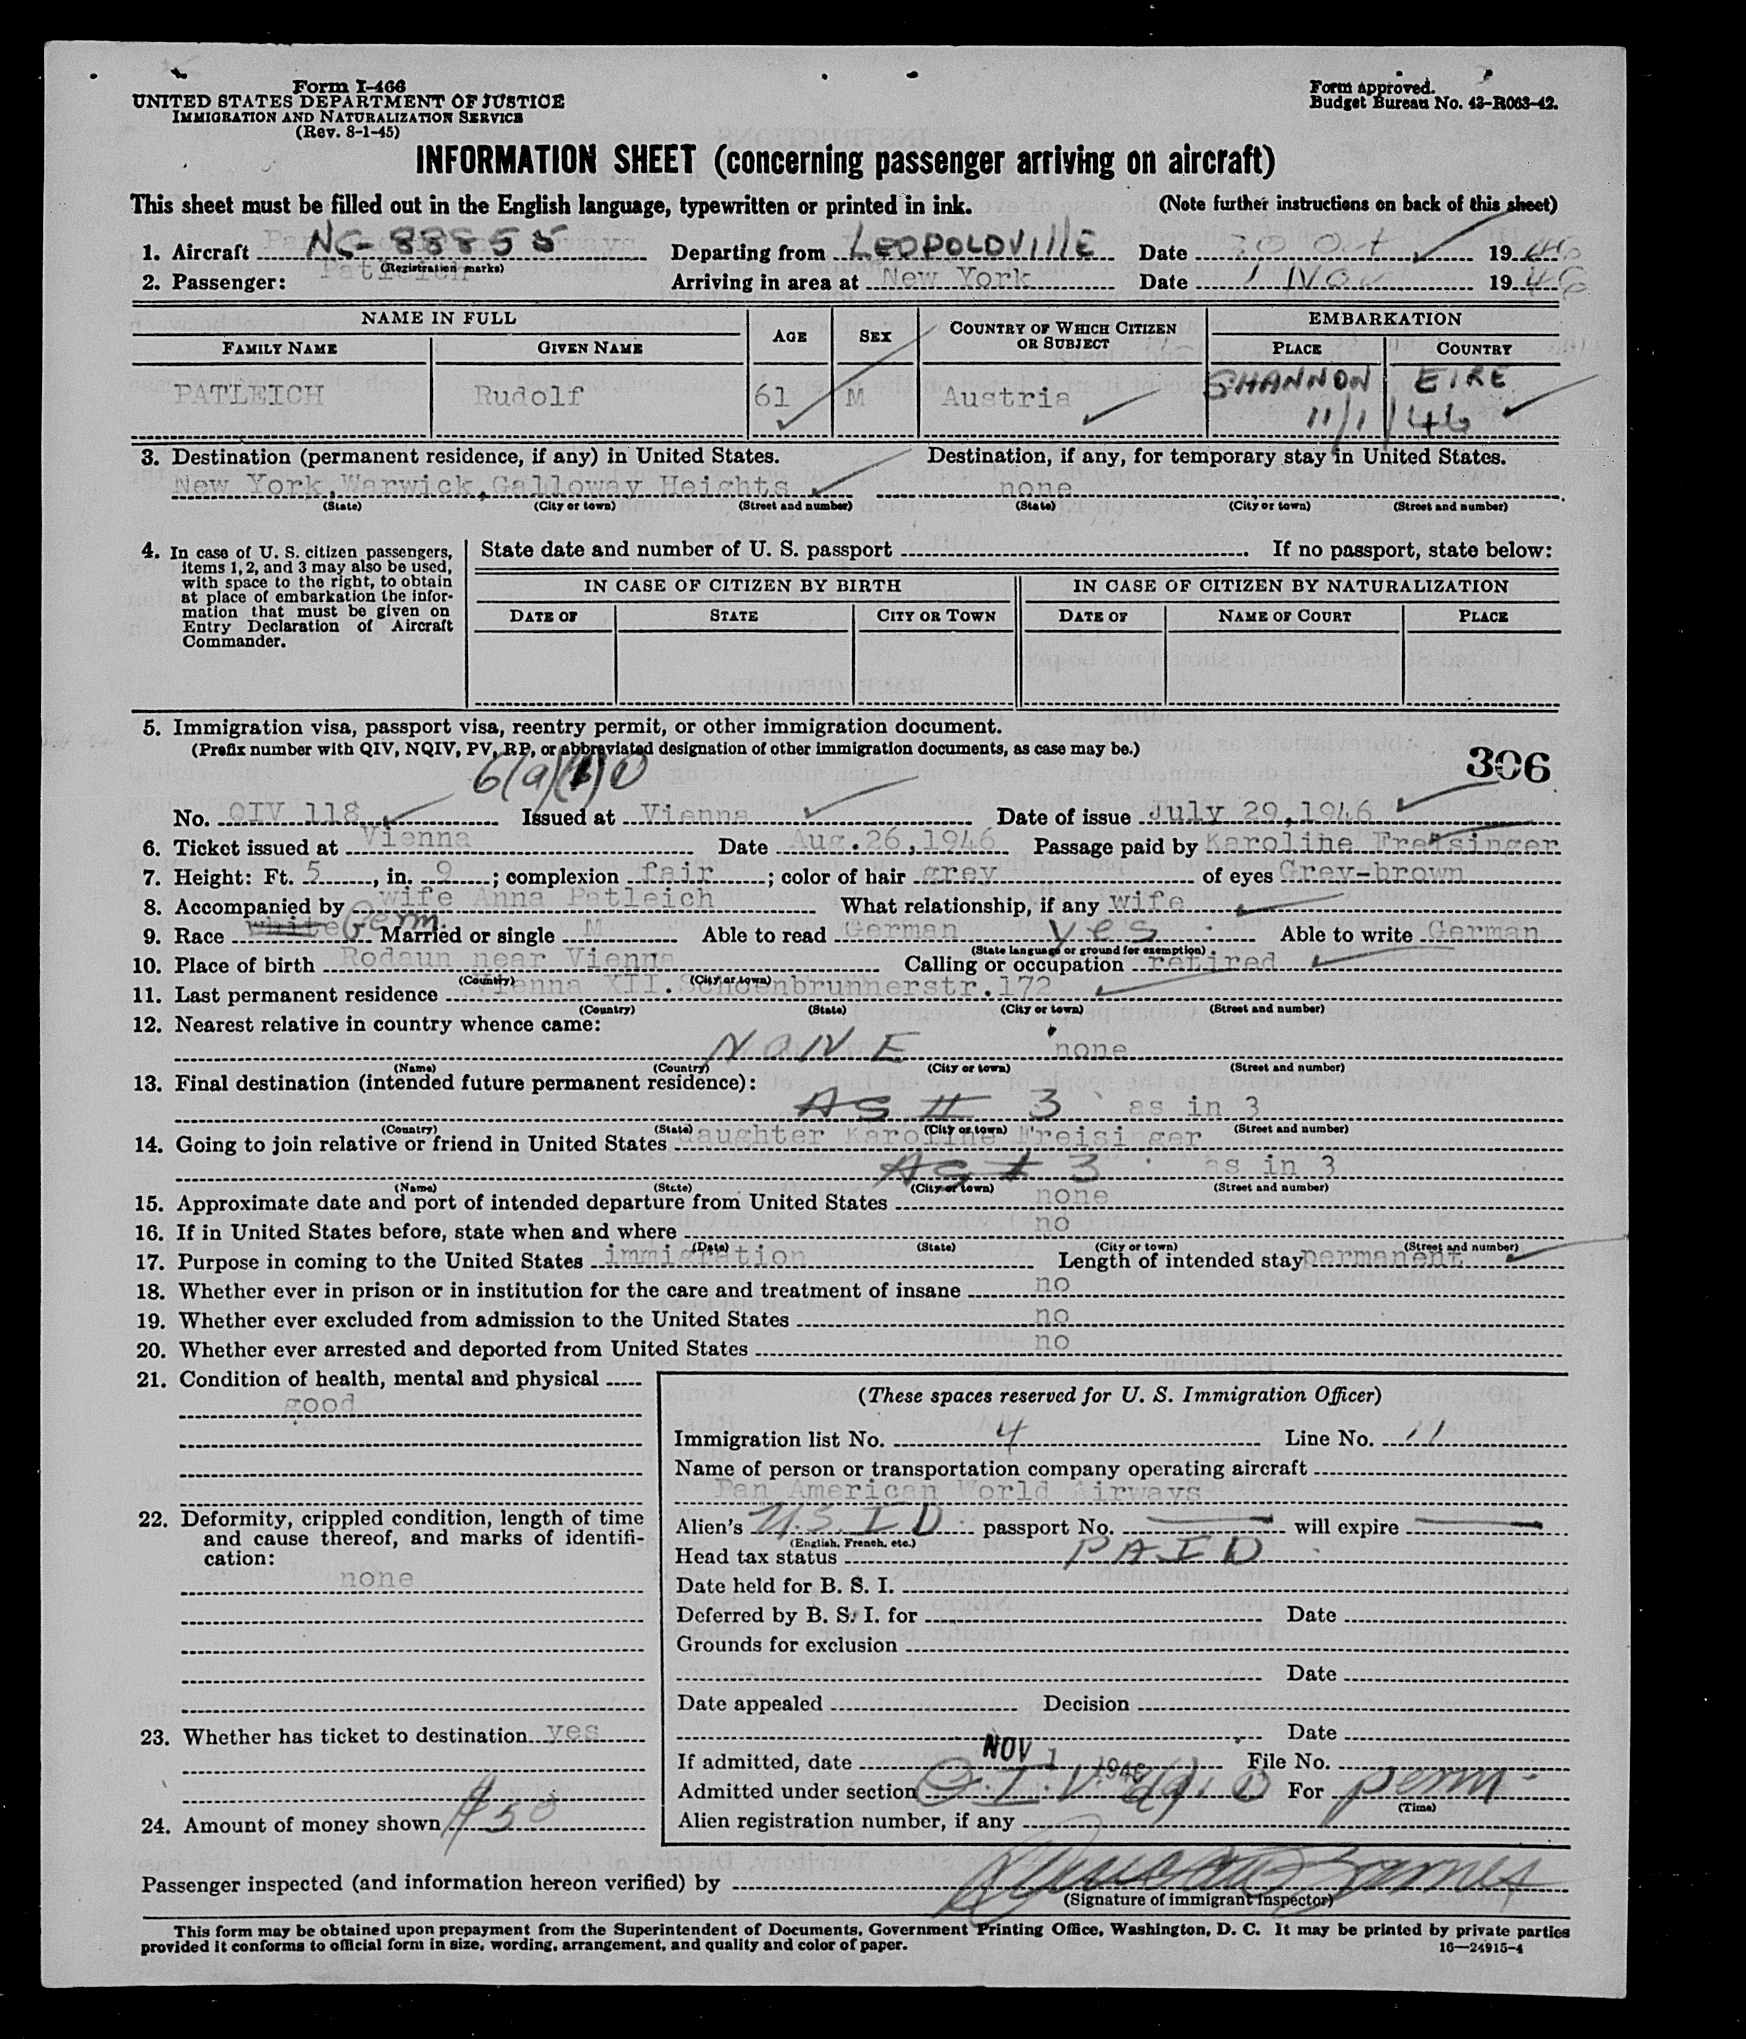 Form I-466
UNITED STATES DEPARTMENT OF JUSTICE
IMMIGRATION AND NATURALIZATION SERVICE
(Rev. 8-1-45)
Form approved.
Budget Bureau No. 43-R063-42.
INFORMATION SHEET (concerning passenger arriving on aircraft)
This sheet must be filled out in the English language, typewritten or printed in ink. (Note further instructions on back of this sheet)
1. Aircraft NC-88855 Departing from LEOPOLDVIllE Date 30 Oct 1946
(Registration marks)
2. Passenger: Patleich Arriving in area at New York Date 1 Nov 1946
NAME IN FULL AGE SEX COUNTRY OF WHICH CITIZEN OR SUBJECT EMBARKATION
FAMILY NAME GIVEN NAME PLACE COUNTRY
PATLEICH Rudolf 61 M Austria SHANNON EIRE
11/1/46
3. Destination (permanent residence, if any) in United States. Destination, if any, for temporary stay in United States.
New York, Warwick, Galloway Heights none
(State) (City or town) (Street and number) (State) (City or town) (Street and number)
4. In case of U. S. citizen passengers, items 1, 2, and 3 may also be used, with space to the right, to obtain at place of embarkation the information that must be given on Entry Declaration of Aircraft Commander.
State date and number of U. S. passport . If no passport, state below:
IN CASE OF CITIZEN BY BIRTH IN CASE OF CITIZEN BY NATURALIZATION
DATE OF STATE CITY OR TOWN DATE OF NAME OF COURT PLACE
5. Immigration visa, passport visa, reentry permit, or other immigration document.
(Prefix number with QIV, NQIV, PV, RP, or abbreviated designation of other immigration documents, as case may be.)
306
6(a)(1)
No. QIV 118 Issued at Vienna Date of issue July 29, 1946
6. Ticket issued at Vienna Date Aug. 26, 1946 Passage paid by Karoline Freisinger
7. Height: Ft. 5, in. 9; complexion fair; color of hair grey of eyes Grey-brown
8. Accompanied by wife Anna Patleich What relationship, if any wife
9. Race White Germ. Married or single M Able to read German yes Able to write German
(State language or ground for exemption)
10. Place of birth Rodaun near Vienna Calling or occupation retired
(Country) (City or town)
11. Last permanent residence Vienna XII. Schoenbrunnerstr. 172
(Country) (State) (City or town) (Street and number)
12. Nearest relative in country whence came:
NONE none
(Name) (Country) (City or town) (Street and number)
13. Final destination (intended future permanent residence):
AS # 3 as in 3
(Country) (State) (City or town) (Street and number)
14. Going to join relative or friend in United States daughter Karoline Freisinger
AS # 3 as in 3
(Name) (State) (City or town) (Street and number)
15. Approximate date and port of intended departure from United States none
16. If in United States before, state when and where no
(Date) (State) (City or town) (Street and number)
17. Purpose in coming to the United States immigration Length of intended stay permanent
18. Whether ever in prison or in institution for the care and treatment of insane no
19. Whether ever excluded from admission to the United States no
20. Whether ever arrested and deported from United States no
21. Condition of health, mental and physical
good
22. Deformity, crippled condition, length of time
and cause thereof, and marks of identifi-
cation:
none
23. Whether has ticket to destination yes
24. Amount of money shown $50
(These spaces reserved for U. S. Immigration Officer)
Immigration list No. 4 Line No. 11
Name of person or transportation company operating aircraft
Pan American World Airways
Alien's U.S. I D passport No. — will expire —
(English, French, etc.)
Head tax status PAID
Date held for B. S. I.
Deferred by B. S. I. for Date
Grounds for exclusion
Date
Date appealed Decision
Date
If admitted, date NOV 1 1946 File No.
Admitted under section Q.I.V. For perm.
(Time)
Alien registration number, if any
Passenger inspected (and information hereon verified) by
(Signature of immigrant inspector)
This form may be obtained upon prepayment from the Superintendent of Documents, Government Printing Office, Washington, D. C. It may be printed by private parties
provided it conforms to official form in size, wording, arrangement, and quality and color of paper.
16—24915-4